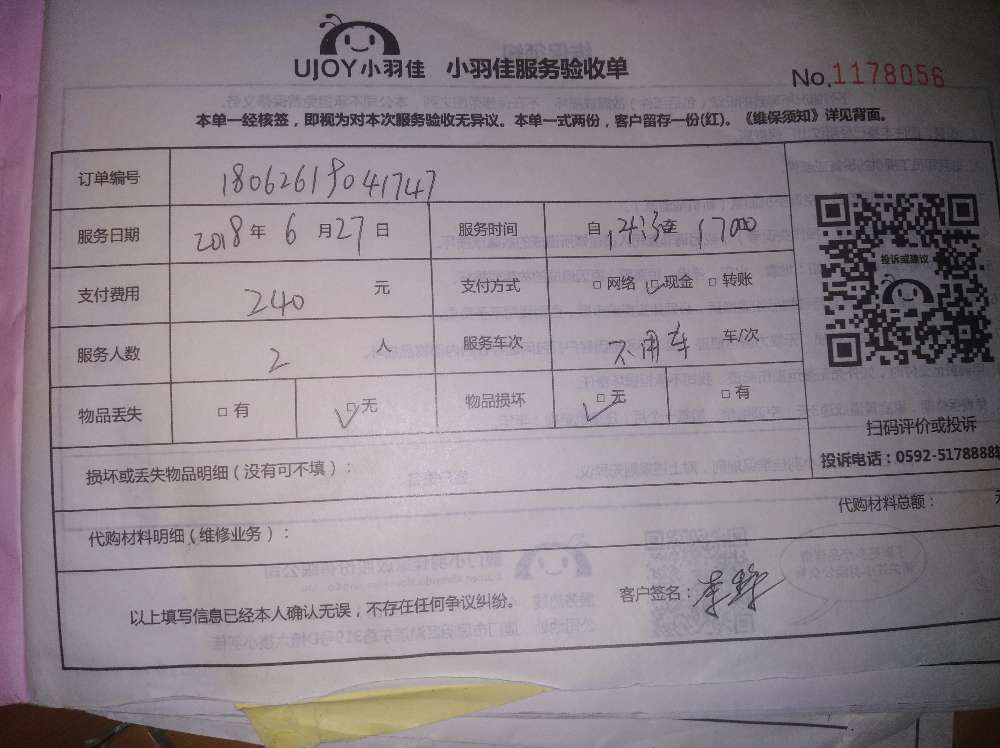 UJOY小羽佳 小羽佳服务验收单
No.1178056
本单一经核签，即视为对本次服务验收无异议。本单一式两份，客户留存一份(红)。《维保须知》详见背面。
订单编号
服务日期 2018年6月27日 服务时间 自 至 17:00
支付费用 240 元 支付方式 □网络 □现金 □转账
投诉或建议
服务人数 2 人 服务车次 不用车 车/次
物品丢失 □有 □无 物品损坏 □无 □有
扫码评价或投诉
投诉电话：0592-5178888
损坏或丢失物品明细（没有可不填）：
代购材料明细（维修业务）： 代购材料总额：
以上填写信息已经本人确认无误，不存在任何争议纠纷。 客户签名：